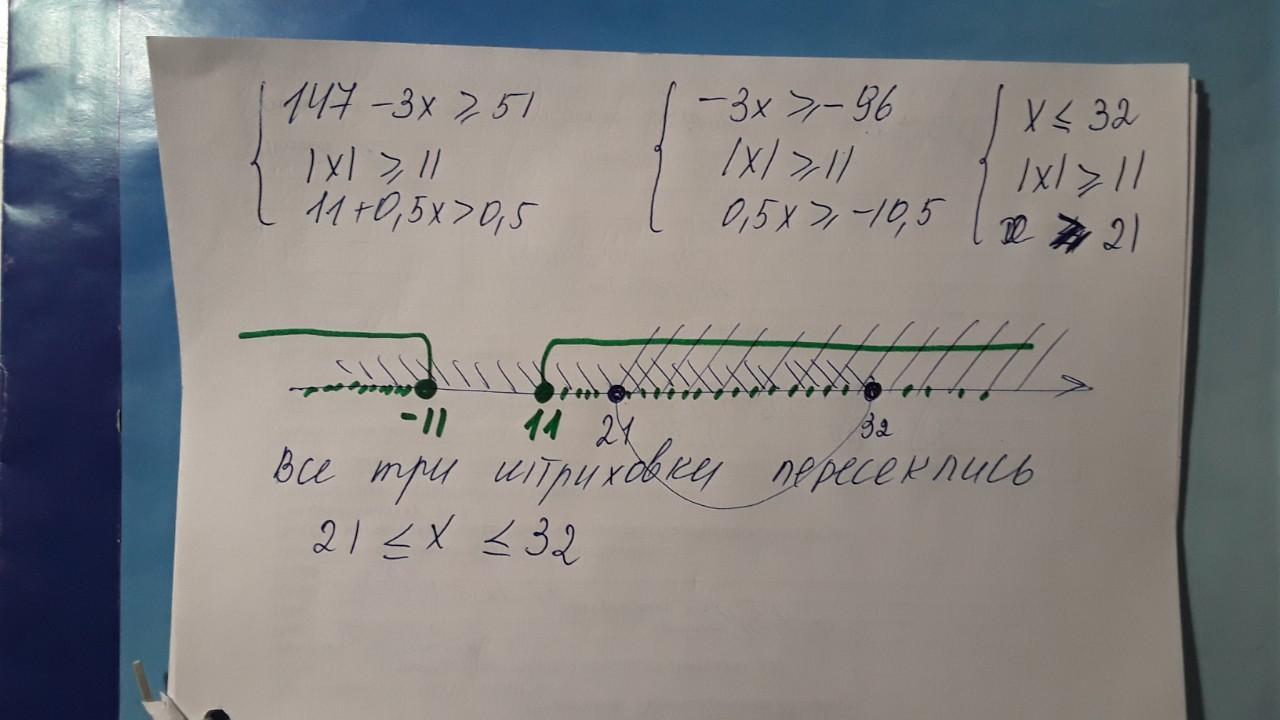 147 -3x ⩾ 51
|x| ⩾ 11
11+0,5x>0,5
-3x ⩾ -96
|x| ⩾ 11
0,5x ⩾ -10,5
x ≤ 32
|x| ⩾ 11
x ⩾ 21
-11 11 21 32
Все три штриховки пересеклись
21 ≤ x ≤ 32